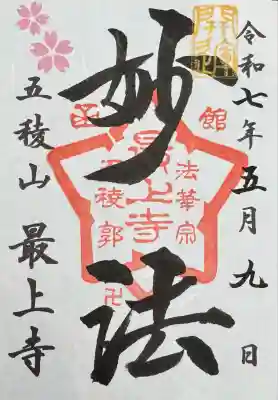 令和七年五月九日
妙法
五稜山 最上寺
函館
法華宗
最上寺
五稜郭
卍